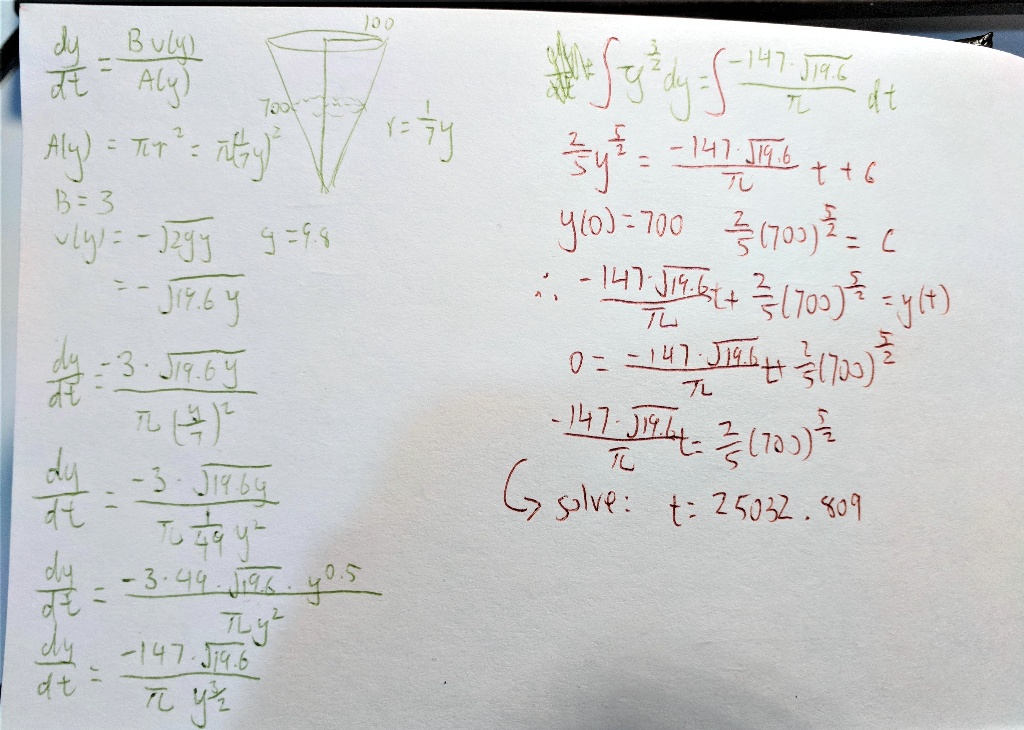 dy/dt = B v(y)/A(y)
100
700
r = 1/7 y
A(y) = πr² = π(1/7 y)²
B = 3
v(y) = -√2gy   g = 9.8
= -√19.6y
dy/dt = -3·√19.6y / π(y/7)²
dy/dt = -3·√19.6y / π 1/49 y²
dy/dt = -3·49·√19.6·y^0.5 / πy²
dy/dt = -147·√19.6 / π y^3/2
∫ y^3/2 dy = ∫ -147·√19.6 / π dt
2/5 y^5/2 = -147·√19.6 / π t + C
y(0) = 700   2/5 (700)^5/2 = C
∴ -147·√19.6 / π t + 2/5 (700)^5/2 = y(t)
0 = -147·√19.6 / π t + 2/5 (700)^5/2
-147·√19.6 / π t = 2/5 (700)^5/2
↳ solve: t = 25032.809